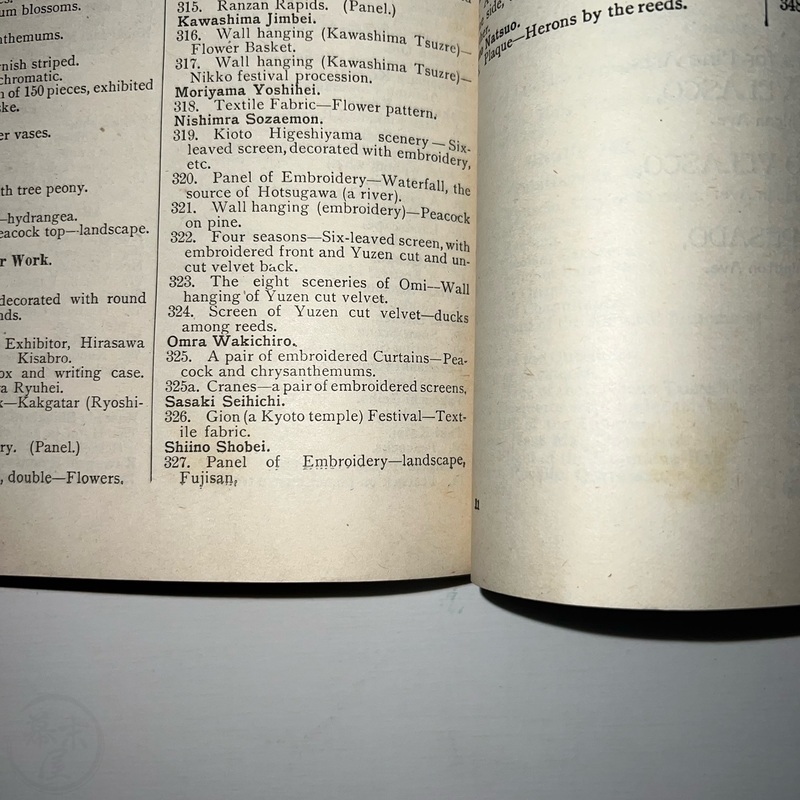 um blossoms.
nthemums.
nish striped.
chromatic.
n of 150 pieces, exhibited
ke.
er vases.
th tree peony.
—hydrangea.
eacock top—landscape.
r Work.
decorated with round
nds.
Exhibitor, Hirasawa
Kisabro.
ox and writing case.
a Ryuhei.
k—Kakgatar (Ryoshi-
ry. (Panel.)
, double—Flowers,
315. Ranzan Rapids. (Panel.)
Kawashima Jimbei.
316. Wall hanging (Kawashima Tsuzre)—
Flower Basket.
317. Wall hanging (Kawashima Tsuzre)—
Nikko festival procession.
Moriyama Yoshihei.
318. Textile Fabric—Flower pattern.
Nishimra Sozaemon.
319. Kioto Higeshiyama scenery—Six-
leaved screen, decorated with embroidery,
etc.
320. Panel of Embroidery—Waterfall, the
source of Hotsugawa (a river).
321. Wall hanging (embroidery)—Peacock
on pine.
322. Four seasons—Six-leaved screen, with
embroidered front and Yuzen cut and un-
cut velvet back.
323. The eight sceneries of Omi—Wall
hanging of Yuzen cut velvet.
324. Screen of Yuzen cut velvet—ducks
among reeds.
Omra Wakichiro.
325. A pair of embroidered Curtains—Pea-
cock and chrysanthemums.
325a. Cranes—a pair of embroidered screens.
Sasaki Seihichi.
326. Gion (a Kyoto temple) Festival—Text-
ile fabric.
Shiino Shobei.
327. Panel of Embroidery—landscape,
Fujisan,
side,
Natsuo.
Plaque—Herons by the reeds.
348
11
幕末屋